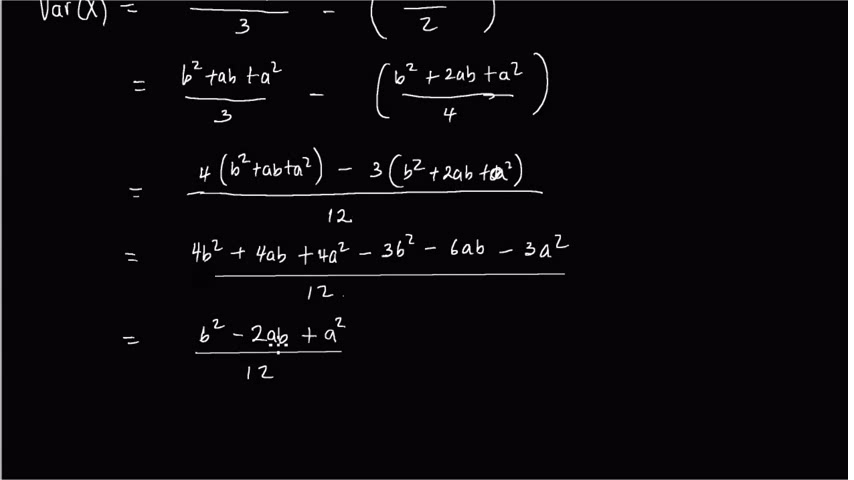 Var(X) = / 3 - ( / 2 )
= (b² + ab + a²) / 3 - ((b² + 2ab + a²) / 4)
= (4(b² + ab + a²) - 3(b² + 2ab + a²)) / 12
= (4b² + 4ab + 4a² - 3b² - 6ab - 3a²) / 12
= (b² - 2ab + a²) / 12